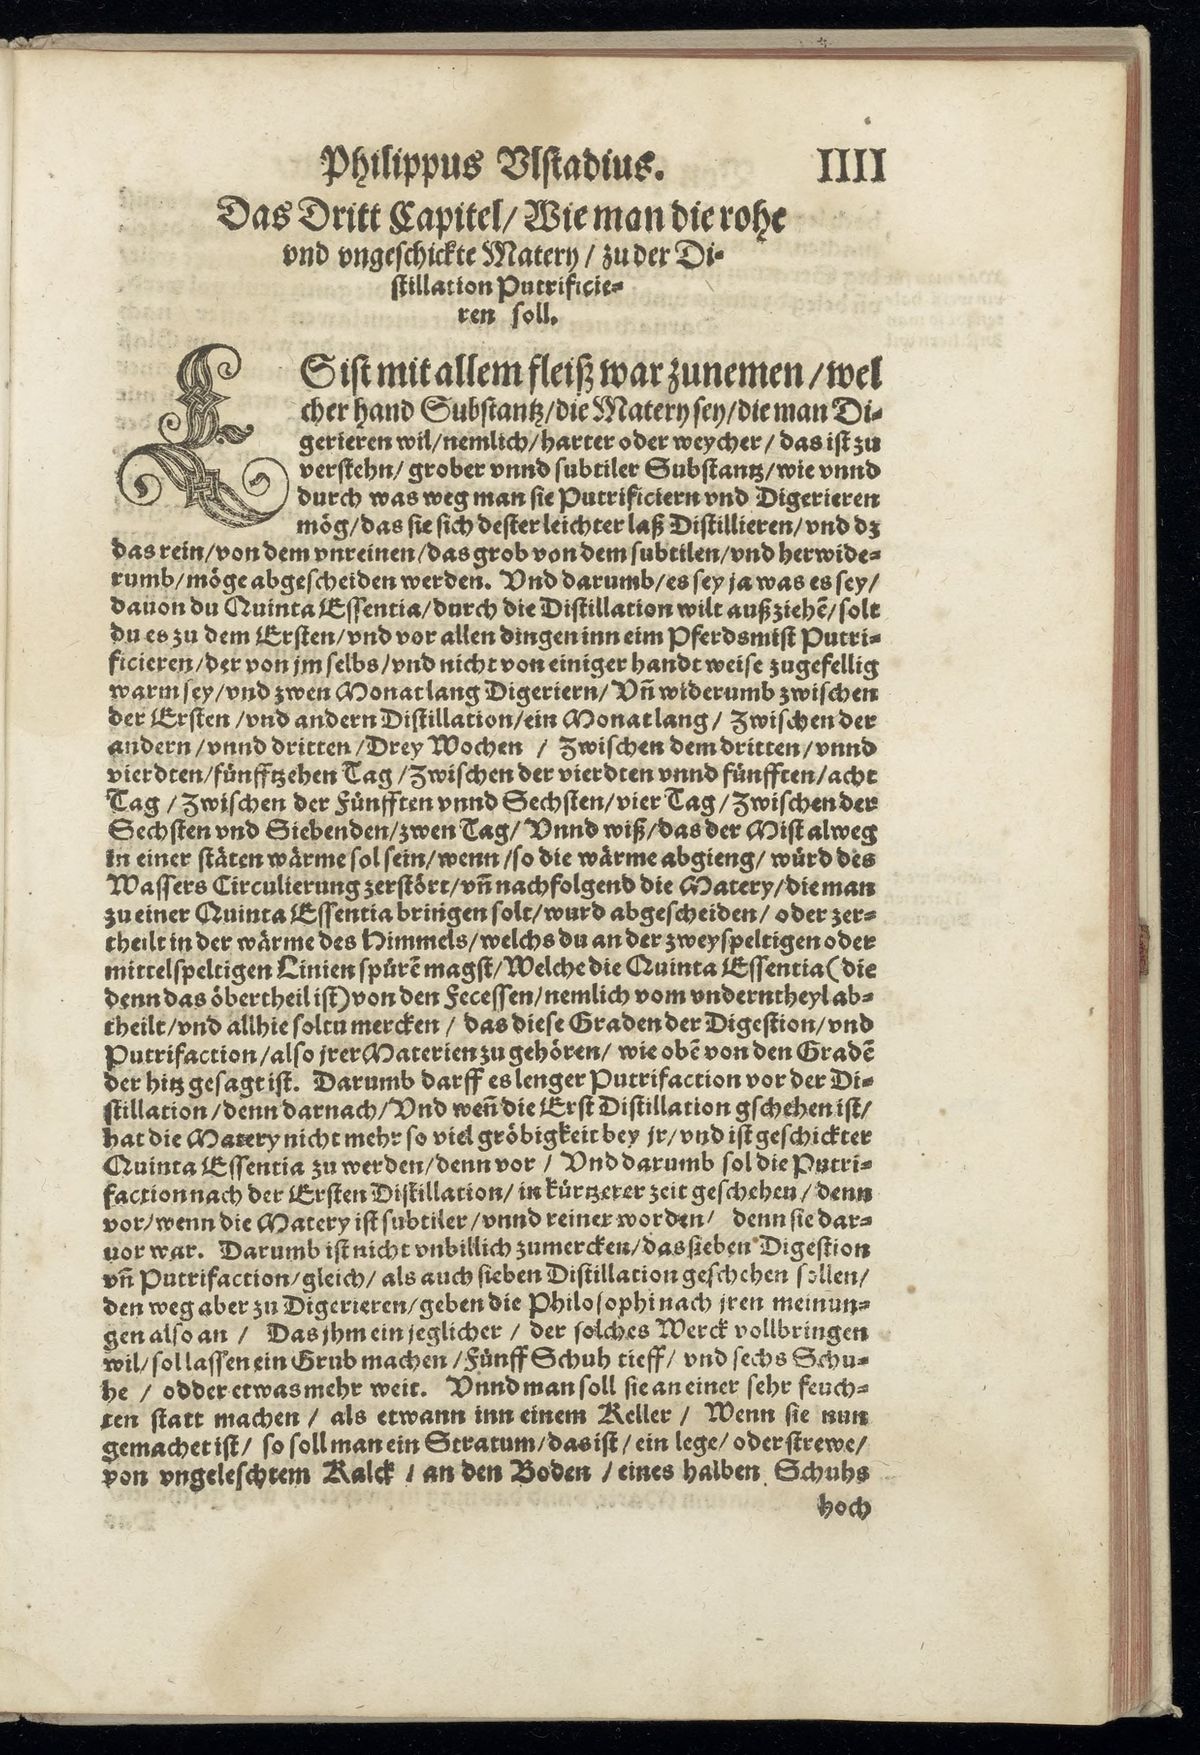 Philippus Vlstadius. IIII
Das Dritt Capitel/ Wie man die rohe
vnd vngeschickte Matery / zu der Di-
stillation Putrificie-
ren soll.
ES ist mit allem fleiß war zunemen / wel
cher hand Substantz/die Matery sey/die man Di-
gerieren wil/nemlich/harter oder weycher/ das ist zu
verstehn/ grober vnnd subtiler Substantz/wie vnnd
durch was weg man sie Putrificiern vnd Digerieren
mög/das sie sich dester leichter laß Distillieren/vnd dz
das rein/von dem vnreinen/das grob von dem subtilen/vnd herwide-
rumb/möge abgescheiden werden. Vnd darumb/es sey ja was es sey/
dauon du Quinta Essentia/durch die Distillation wilt außziehē/solt
du es zu dem Ersten/vnd vor allen dingen inn eim Pferdsmist Putri-
ficieren/der von jm selbs/vnd nicht von einiger handt weise zugefellig
warm sey/vnd zwen Monat lang Digeriern/ Vñ widerumb zwischen
der Ersten /vnd andern Distillation/ein Monat lang/ Zwischen der
andern/vnnd dritten/Drey Wochen / Zwischen dem dritten/vnnd
vierdten/fünfftzehen Tag/Zwischen der vierdten vnnd fünfften/acht
Tag /Zwischen der Fünfften vnnd Sechsten/vier Tag/Zwischen der
Sechsten vnd Siebenden/zwen Tag/ Vnnd wiß/das der Mist alweg
in einer stäten wärme sol sein/wenn/so die wärme abgieng/ würd des
Wassers Circulierung zerstört/vñ nachfolgend die Matery/die man
zu einer Quinta Essentia bringen solt/wurd abgescheiden/ oder zer-
theilt in der wärme des Himmels/welchs du an der zweyspeltigen oder
mittelspeltigen Linien spürē magst/Welche die Quinta Essentia (die
denn das öbertheil ist) von den Fecessen/nemlich vom vnderntheyl ab-
theilt/vnd allhie soltu mercken/ das diese Graden der Digestion/vnd
Putrifaction/also jrer Materien zu gehören/ wie obē von den Gradē
der hitz gesagt ist. Darumb darff es lenger Putrifaction vor der Di-
stillation/denn darnach/Vnd weñ die Erst Distillation gschehen ist/
hat die Matery nicht mehr so viel gröbigkeit bey jr/vnd ist geschickter
Quinta Essentia zu werden/denn vor / Vnd darumb sol die Putri-
faction nach der Ersten Distillation/ in kürtzerer zeit geschehen/denn
vor/wenn die Matery ist subtiler/vnnd reiner worden/ denn sie dar-
uor war. Darumb ist nicht vnbillich zumercken/das sieben Digestion
vñ Putrifaction/gleich/ als auch sieben Distillation geschehen sollen/
den weg aber zu Digerieren/geben die Philosophi nach jren meinun-
gen also an / Das jhm ein jeglicher / der solches Werck vollbringen
wil/sol lassen ein Grub machen/Fünff Schuh tieff/ vnd sechs Schu-
he / odder etwas mehr weit. Vnnd man soll sie an einer sehr feuch-
ten statt machen/ als etwann inn einem Keller/ Wenn sie nun
gemachet ist/ so soll man ein Stratum/das ist/ein lege/oder strewe/
von vngeleschtem Kalck / an den Boden / eines halben Schuhs
hoch